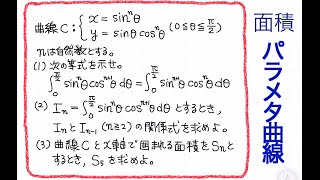 曲線C: { x = sinⁿθ
y = sinθ cosⁿθ (0≦θ≦π/2)
nは自然数とする。
(1) 次の等式を示せ。
∫₀^{π/2} sinⁿθ cosⁿ⁺¹θ dθ = ∫₀^{π/2} sinⁿ⁺¹θ cosⁿθ dθ
(2) Iₙ = ∫₀^{π/2} sinⁿθ cosⁿ⁺¹θ dθ とするとき,
IₙとIₙ₋₁ (n≧2) の関係式を求めよ。
(3) 曲線Cとx軸で囲まれる面積をSₙと
するとき, S₅を求めよ。
面積
パラメタ曲線